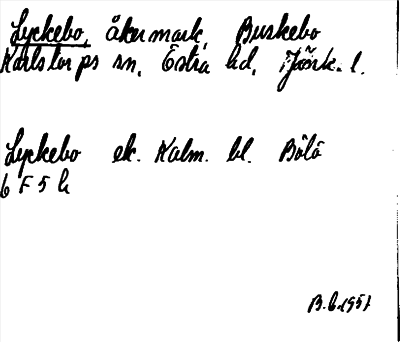 Lyckebo, åkermark, Buskebo
Karlstorps sn, Östra hd, Jönk. l.
Lyckebo ek. Kalm. bl. Bölö
6 F 5 h
B.b.1957